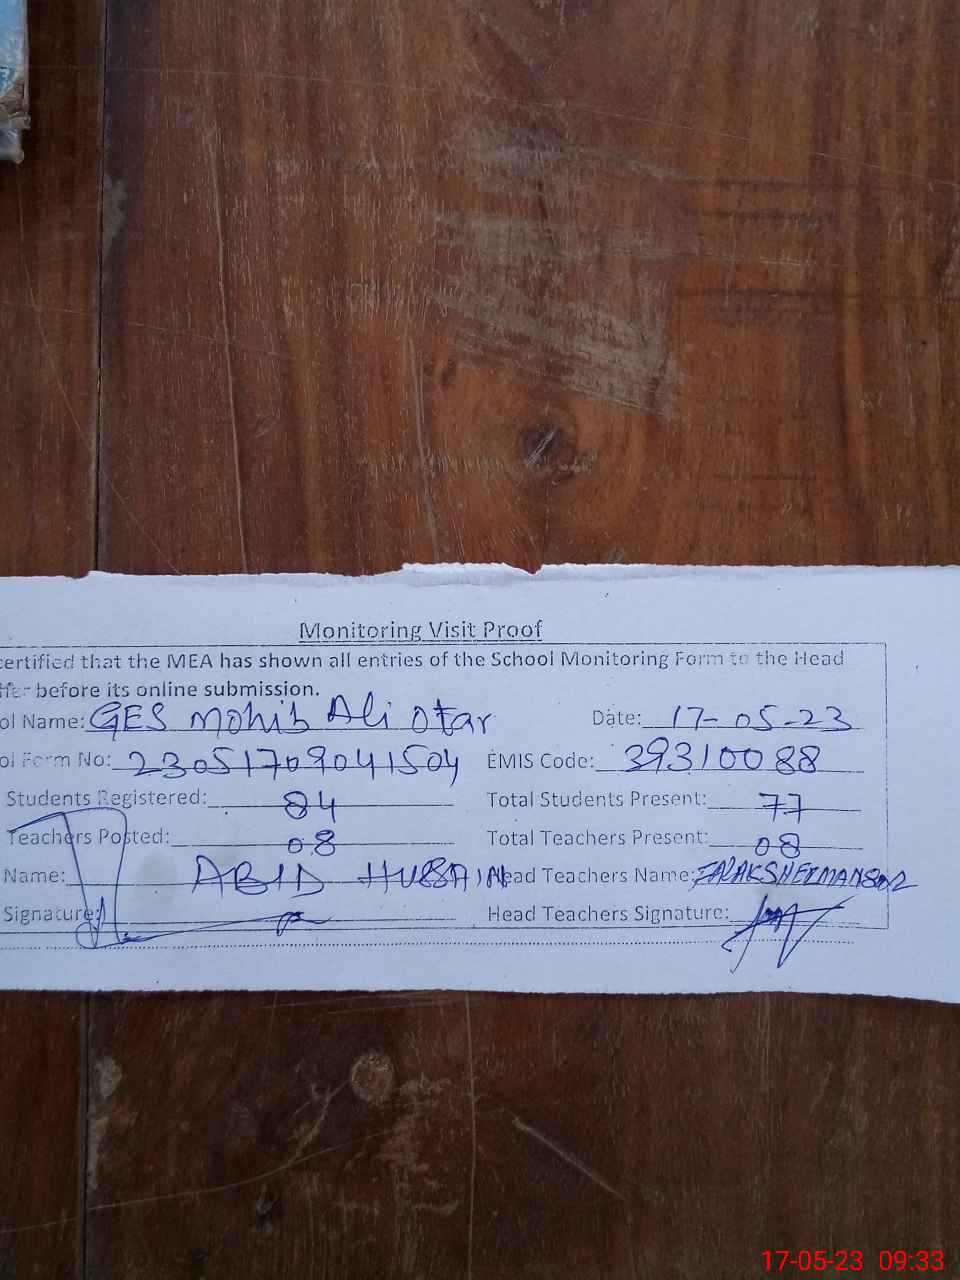 Monitoring Visit Proof
certified that the MEA has shown all entries of the School Monitoring Form to the Head
before its online submission.
ol Name: GES Mohib Ali Otar Date: 17-05-23
ol Form No: 23051709041504 EMIS Code: 39310088
Students Registered: 84 Total Students Present: 77
Teachers Posted: 08 Total Teachers Present: 08
Name: ABID HUSSAIN Head Teachers Name:
Signature: Head Teachers Signature:
17-05-23 09:33